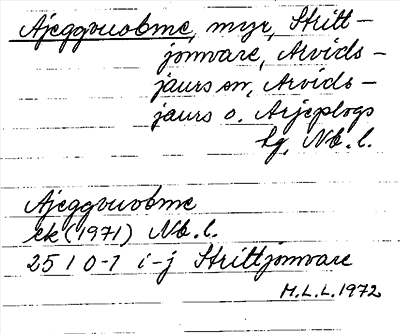 Ajeggvuobme, myr, Stritt-
jomvare, Arvids-
jaurs sn, Arvids-
jaurs o. Arjeplogs
lg, Nb. l.
Ajeggvuobme
ek (1971) Nb. l.
25 I 0-1 i-j Strittjomvare
M.L.L. 1972